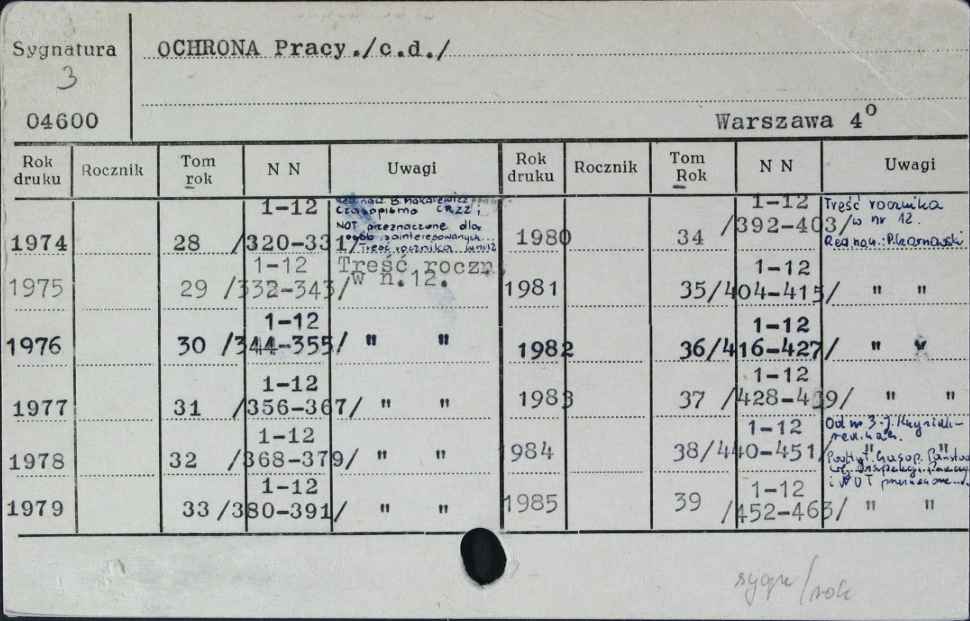 Sygnatura
3
04600
OCHRONA Pracy./c.d./
Warszawa 4o
Rok druku Rocznik Tom rok N N Uwagi Rok druku Rocznik Tom Rok N N Uwagi
1974 28 1-12 /320-331/ Red.nacz. B. Makarewicz
Czasopismo CRZZ;
NOT przeznaczone dla
osób zainteresowanych...
Treść rocznika w nr 12
1975 29 1-12 /332-343/ Treść roczn.
w n.12.
1976 30 1-12 /344-355/ " "
1977 31 1-12 /356-367/ " "
1978 32 1-12 /368-379/ " "
1979 33 1-12 /380-391/ " "
1980 34 1-12 /392-403/ Treść rocznika
w nr 12.
Red.nacz.:
1981 35 1-12 /404-415/ " "
1982 36 1-12 /416-427/ " "
1983 37 1-12 /428-439/ " "
1984 38 1-12 /440-451/ " "
Od nr 3-J.
red.nacz.
Podtyt. Czasop. Państw.
Inspekcji Pracy
i NOT
1985 39 1-12 /452-463/ " "
sygn/rok